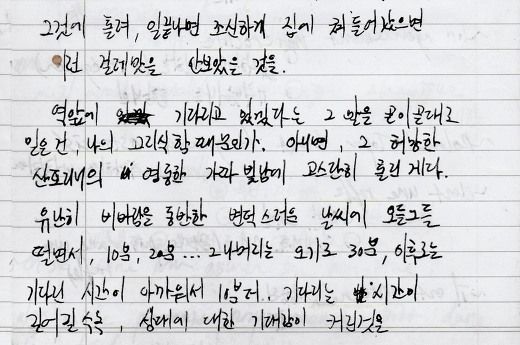 그것에 홀려, 일끝나면 조신하게 집에 쳐들어갔으면
이런 걸레맛을 안보았을 것을.
역앞에 기다리고 있겠다는 그 말을 곧이곧대로
믿은건, 나의 그리식함 때문인가. 아니면, 그 허망한
산포리니의 영롱한 가짜 빛남에 고스란히 홀린 게다.
유난히 비바람을 동반한 변덕스러운 날씨에 오들오들
떨면서, 10분, 20분... 그나머지는 오기로 30분, 이후로는
기다린 시간이 아까워서 10분더. 기다리는 시간이
길어질수록, 상대에 대한 기대감이 커진것을